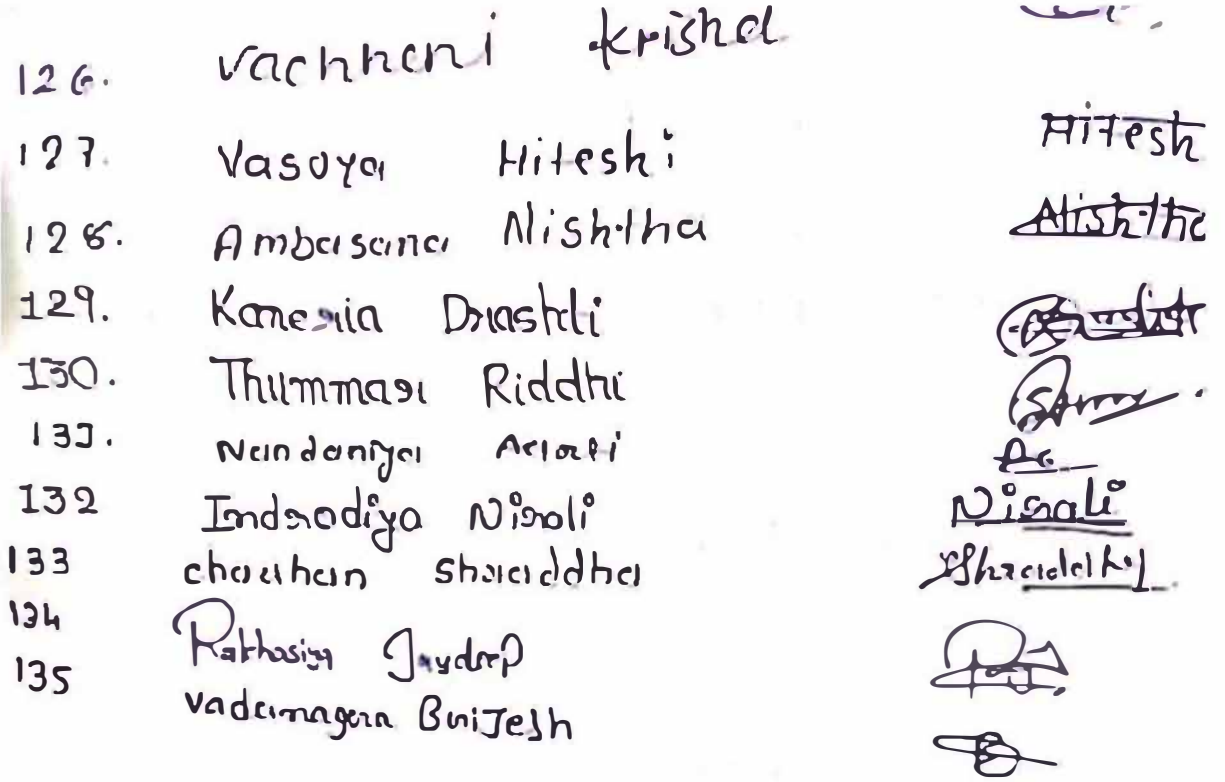 126. Vachhani Krisha
127. Vasoya Hiteshi Hitesh
128. Ambasana Nishtha Nishtha
129. Kaneria Drashti
130. Thummar Riddhi
131. Nandaniya Aarati Aa
132 Indrodiya Nirali Nirali
133 chauhan Shraddha Shraddha
134 Rakhasiya Jaydeep
135 Vadamagara Brijesh